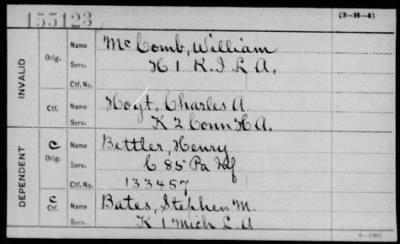 155123
(3-H-4)
INVALID
Orig. Name McComb, William
Serv. H 1 R.I L A.
Ctf. No.
Ctf. Name Hoyt, Charles A.
Serv. K 2 Conn H A.
DEPENDENT
C Orig. Name Bettler, Henry
Serv. C 85 Pa Inf
Ctf. No. 133457
C Ctf. Name Bates, Stephen M.
Serv. K 1 Mich L A